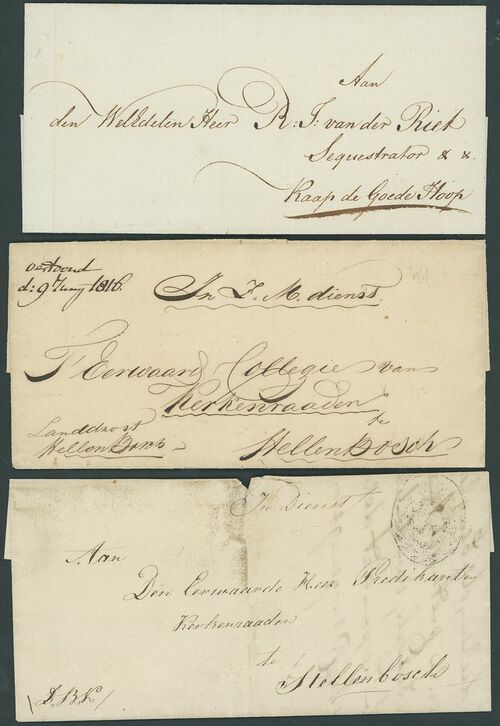 Aan
den WelEdelen Heer R: J: van der Riet
Sequestrator & &.
Kaap de Goede Hoop
vertoond
d: 9 Juny 1816.
In Z. M. dienst.
T Eerwaard Collegie van
Kerkenraaden
te
Stellenbosch
Landdrost
Stellenbosch
In Dienst
Aan
Den Eerwaarde Heer Predikant en
Kerkenraaden
te
Stellenbosch